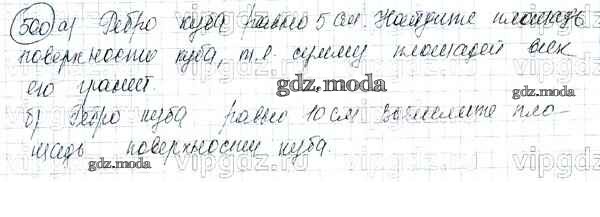 500 а) Ребро куба равно 5 см. Найдите площадь
поверхности куба, т.е. сумму площадей всех
его граней.
gdz.moda
б) Ребро куба равно 10 см Вычислите пло-
щадь поверхности куба.
gdz.moda